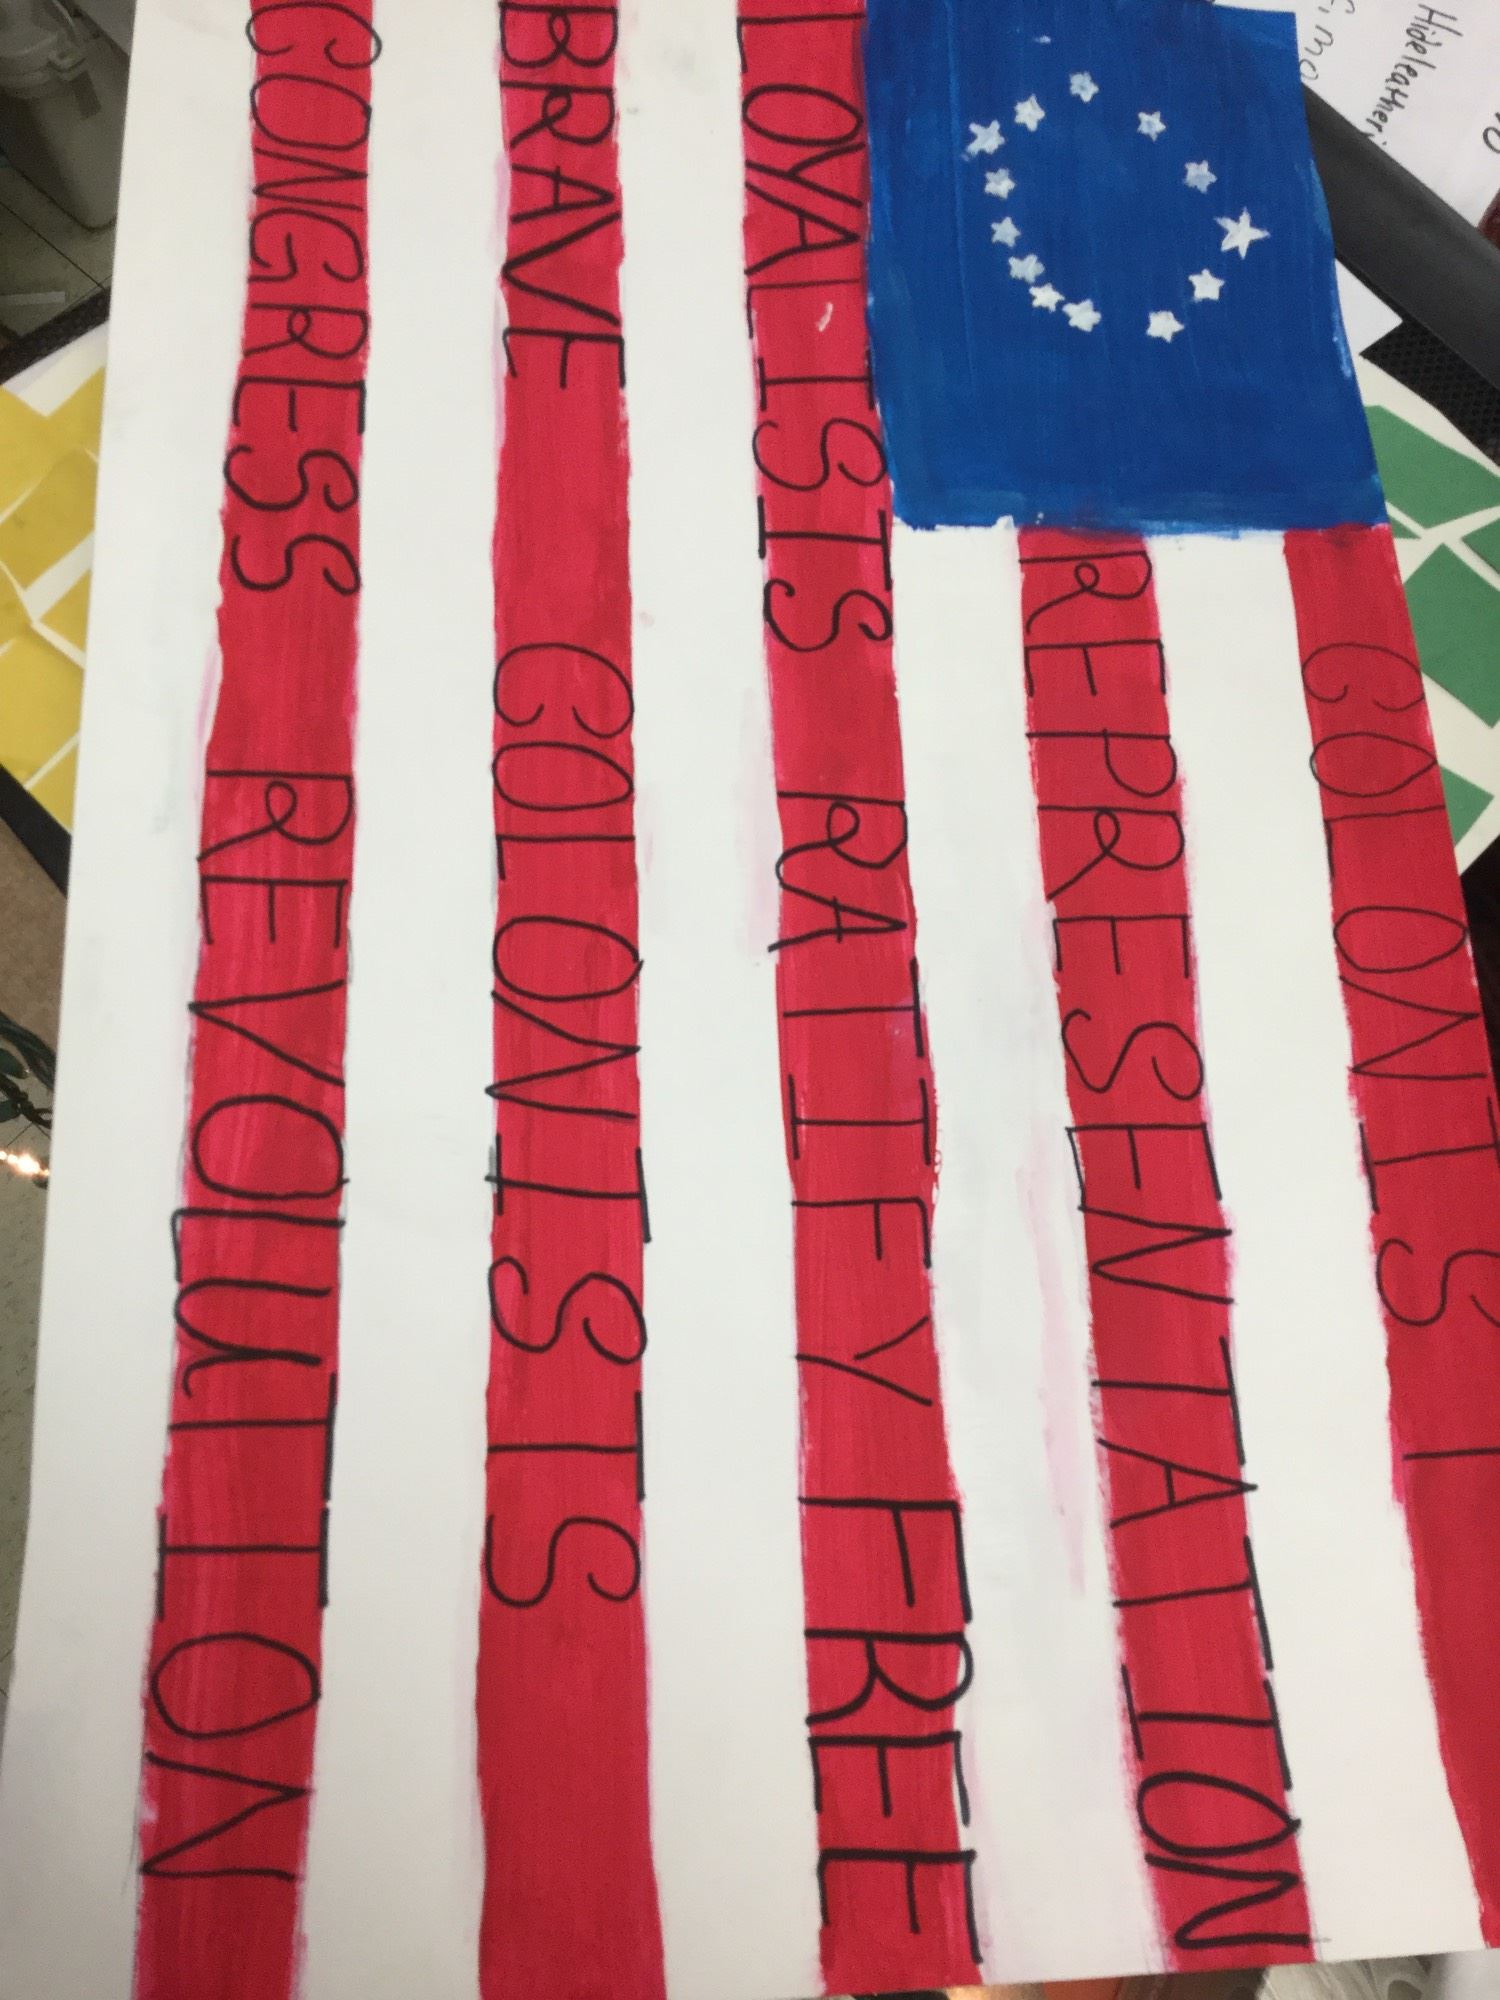 COLONIST
REPRESENTATION
LOYALISTS RATIFY FREE
BRAVE COLONISTS
CONGRESS REVOLUTION
Hideleather